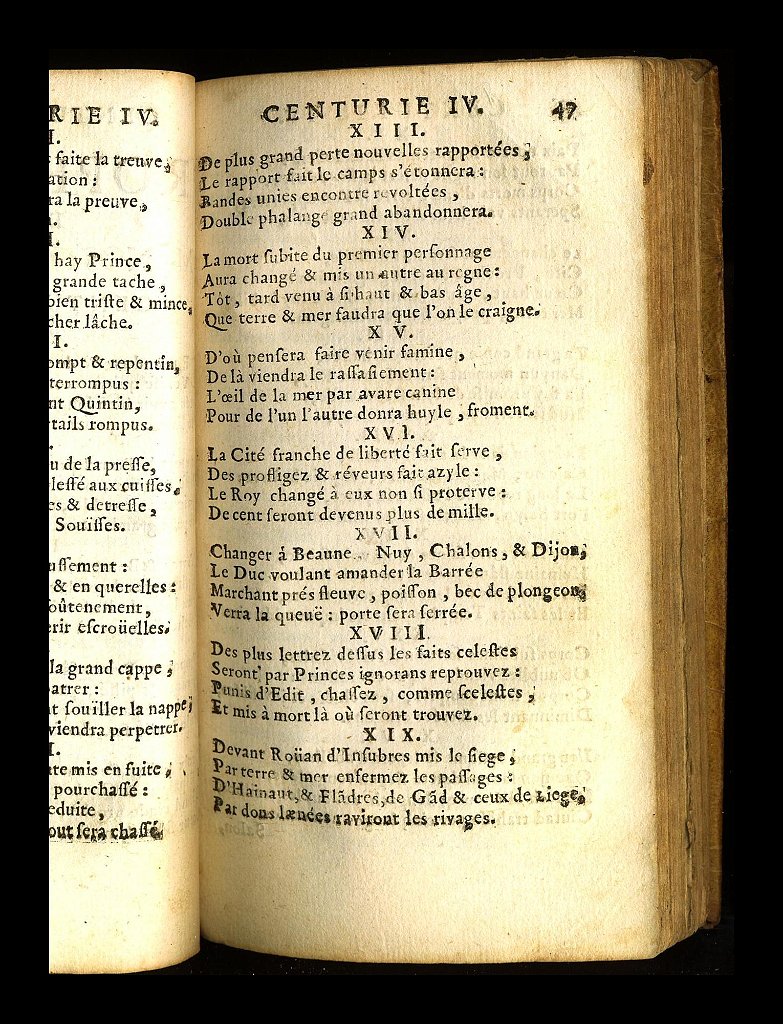 RIE IV.
I.
faite la treuve,
ation :
ra la preuve,
I.
hay Prince,
grande tache,
bien triste & mince,
cher lâche.
I.
ompt & repentin,
terrompus :
nt Quintin,
tails rompus.
u de la presse,
lessé aux cuisses,
es & detresse,
Souïsses.
ussement :
& en querelles :
oûtenement,
erir escroüelles.
la grand cappe ;
batrer :
t soüiller la nappe ;
viendra perpetrer.
I.
te mis en fuite ,
pourchassé :
eduite,
out sera chassé
CENTURIE IV. 47
XIII.
De plus grand perte nouvelles rapportées ;
Le rapport fait le camps s'étonnera :
Bandes unies encontre revoltées ,
Double phalange grand abandonnera.
XIV.
La mort subite du premier personnage
Aura changé & mis un autre au regne :
Tôt, tard venu à si haut & bas âge ,
Que terre & mer faudra que l'on le craigne.
XV.
D'où pensera faire venir famine ,
De là viendra le rassasiement :
L'œil de la mer par avare canine
Pour de l'un l'autre donra huyle , froment.
XVI.
La Cité franche de liberté fait serve ,
Des profligez & réveurs fait azyle :
Le Roy changé à eux non si proterve :
De cent seront devenus plus de mille.
XVII.
Changer á Beaune Nuy , Chalons, & Dijon,
Le Duc voulant amander la Barrée
Marchant prés fleuve, poisson , bec de plongeon,
Verra la queuë : porte sera serrée.
XVIII.
Des plus lettrez dessus les faits celestes
Seront par Princes ignorans reprouvez :
Punis d'Edit , chassez , comme scelestes ,
Et mis à mort là où seront trouvez.
XIX.
Devant Roüan d'Insubres mis le siege ,
Par terre & mer enfermez les passages :
D'Hainaut, & Flãdres, de Gãd & ceux de Liege,
Par dons lænées raviront les rivages.